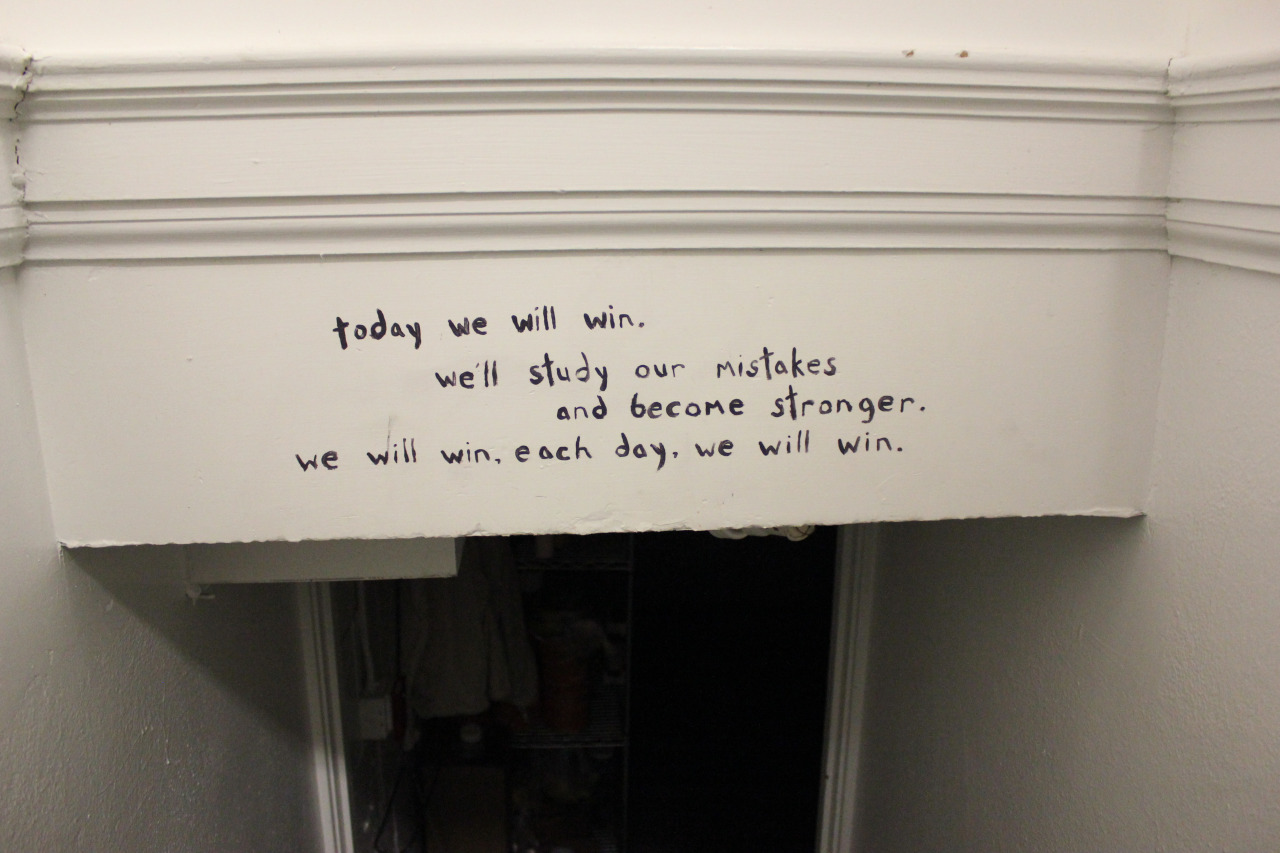 today we will win.
we'll study our mistakes
and become stronger.
we will win, each day, we will win.